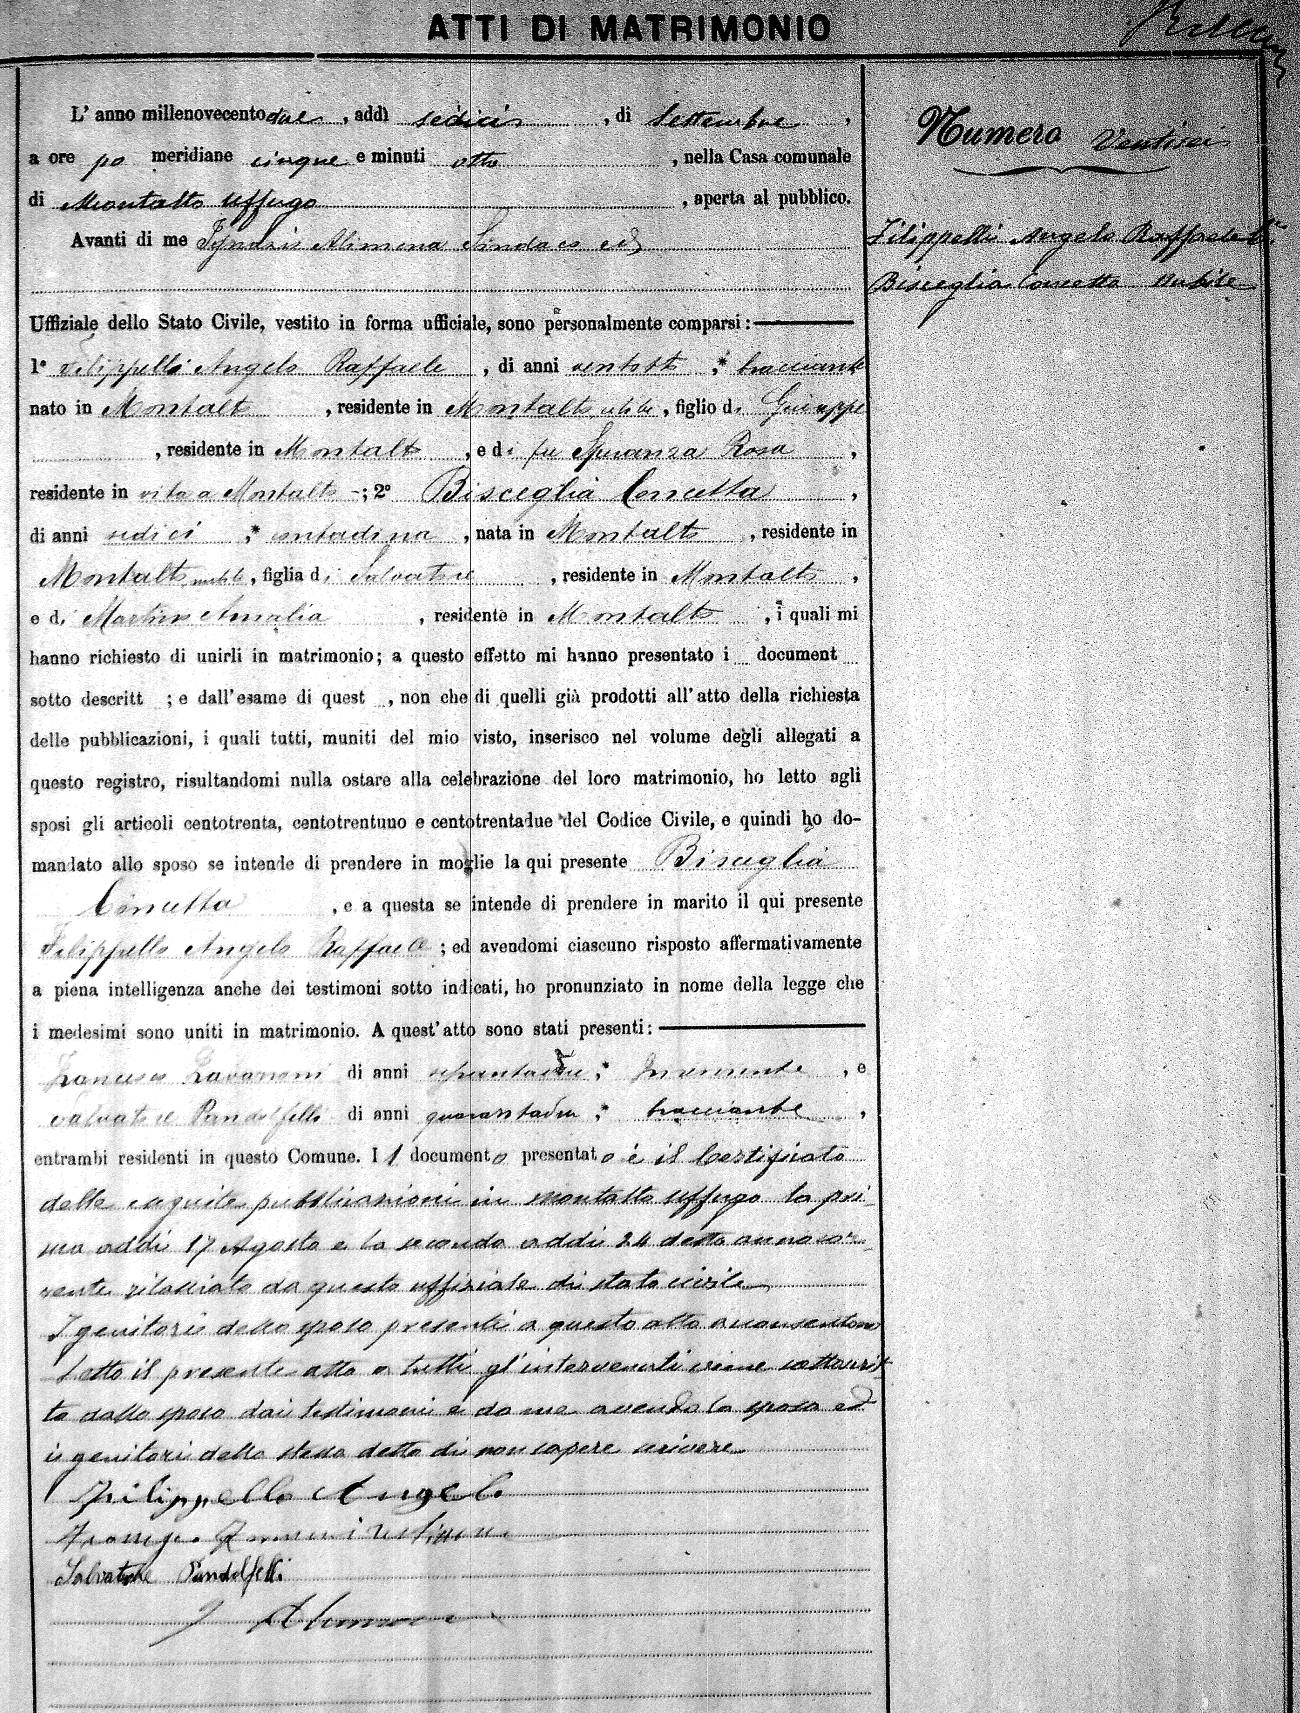 ATTI DI MATRIMONIO
L' anno millenovecento due, addì sedici, di Settembre,
a ore po meridiane cinque e minuti otto, nella Casa comunale
di Montalto Uffugo, aperta al pubblico.
Avanti di me Alimena Sindaco ed
Uffiziale dello Stato Civile, vestito in forma ufficiale, sono personalmente comparsi:
1° Filippelli Angelo Raffaele, di anni ventotto, * bracciante
nato in Montalto, residente in Montalto celibe, figlio di Giuseppe
, residente in Montalto, e di fu Speranza Rosa,
residente in vita a Montalto -; 2° Bisceglia Concetta,
di anni sedici, * contadina, nata in Montalto, residente in
Montalto nubile, figlia di Salvatore, residente in Montalto,
e di Martino Amalia, residente in Montalto, i quali mi
hanno richiesto di unirli in matrimonio; a questo effetto mi hanno presentato i document
sotto descritt ; e dall'esame di quest , non che di quelli già prodotti all'atto della richiesta
delle pubblicazioni, i quali tutti, muniti del mio visto, inserisco nel volume degli allegati a
questo registro, risultandomi nulla ostare alla celebrazione del loro matrimonio, ho letto agli
sposi gli articoli centotrenta, centotrentuno e centotrentadue del Codice Civile, e quindi ho do-
mandato allo sposo se intende di prendere in moglie la qui presente Bisceglia
Concetta, e a questa se intende di prendere in marito il qui presente
Filippelli Angelo Raffaele; ed avendomi ciascuno risposto affermativamente
a piena intelligenza anche dei testimoni sotto indicati, ho pronunziato in nome della legge che
i medesimi sono uniti in matrimonio. A quest'atto sono stati presenti:
Francesco di anni, * , e
Salvatore Pandolfelli di anni quarantadue, * bracciante,
entrambi residenti in questo Comune. I 1 documento presentato è il Certificato
delle eseguite pubblicazioni in Montalto Uffugo la pri-
ma addì 17 Agosto e la seconda addì 24 detto anno cor-
rente rilasciato da questo uffiziale di stato civile
I genitori della sposa presenti a questo atto acconsentono
Letto il presente atto a tutti gl'intervenuti viene sottoscrit
to dallo sposo dai testimoni e da me avendo la sposa ed
i genitori della stessa detto di non sapere scrivere
Filippello Angelo
Salvatore Pandolfelli
Alimena
Numero Ventisei
Filippelli Angelo Raffaele
Bisceglia Concetta nubile